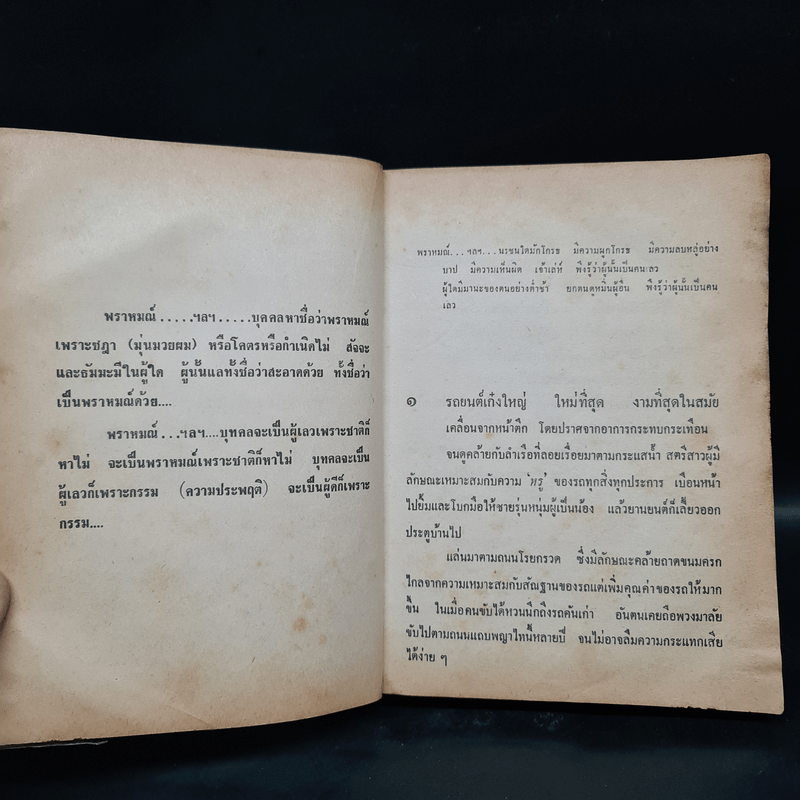 พราหมณ์.....ฯลฯ.....บุคคลหาชื่อว่าพราหมณ์
เพราะชฎา (มุ่นมวยผม) หรือโคตรหรือกำเนิดไม่ สัจจะ
และธัมมะมีในผู้ใด ผู้นั้นแลทั้งชื่อว่าสะอาดด้วย ทั้งชื่อว่า
เป็นพราหมณ์ด้วย....
พราหมณ์...ฯลฯ....บุคคลจะเป็นผู้เลวเพราะชาติก็
หาไม่ จะเป็นพราหมณ์เพราะชาติก็หาไม่ บุคคลจะเป็น
ผู้เลวก็เพราะกรรม (ความประพฤติ) จะเป็นผู้ดีก็เพราะ
กรรม....
พราหมณ์...ฯลฯ...นรชนใดมักโกรธ มีความผูกโกรธ มีความลบหลู่อย่าง
บาป มีความเห็นผิด เจ้าเล่ห์ พึงรู้ว่าผู้นั้นเป็นคนเลว
ผู้ใดมีมานะของตนอย่างต่ำช้า ยกตนดูหมิ่นผู้อื่น พึงรู้ว่าผู้นั้นเป็นคน
เลว
๑ รถยนต์เก๋งใหญ่ ใหม่ที่สุด งามที่สุดในสมัย
เคลื่อนจากหน้าตึก โดยปราศจากอาการกระทบกระเทือน
จนดูคล้ายกับลำเรือที่ลอยเรื่อยมาตามกระแสน้ำ สตรีสาวผู้มี
ลักษณะเหมาะสมกับความ 'หรู' ของรถทุกสิ่งทุกประการ เบือนหน้า
ไปยิ้มและโบกมือให้ชายรุ่นหนุ่มผู้เป็นน้อง แล้วยานยนต์ก็เลี้ยวออก
ประตูบ้านไป
แล่นมาตามถนนโรยกรวด ซึ่งมีลักษณะคล้ายถาดขนมครก
ไกลจากความเหมาะสมกับสัณฐานของรถแต่เพิ่มคุณค่าของรถให้มาก
ขึ้น ในเมื่อคนขับได้หวนนึกถึงรถคันเก่า อันตนเคยถือพวงมาลัย
ขับไปตามถนนแถบพญาไทนี้หลายปี จนไม่อาจลืมความกระแทกเสีย
ได้ง่าย ๆ